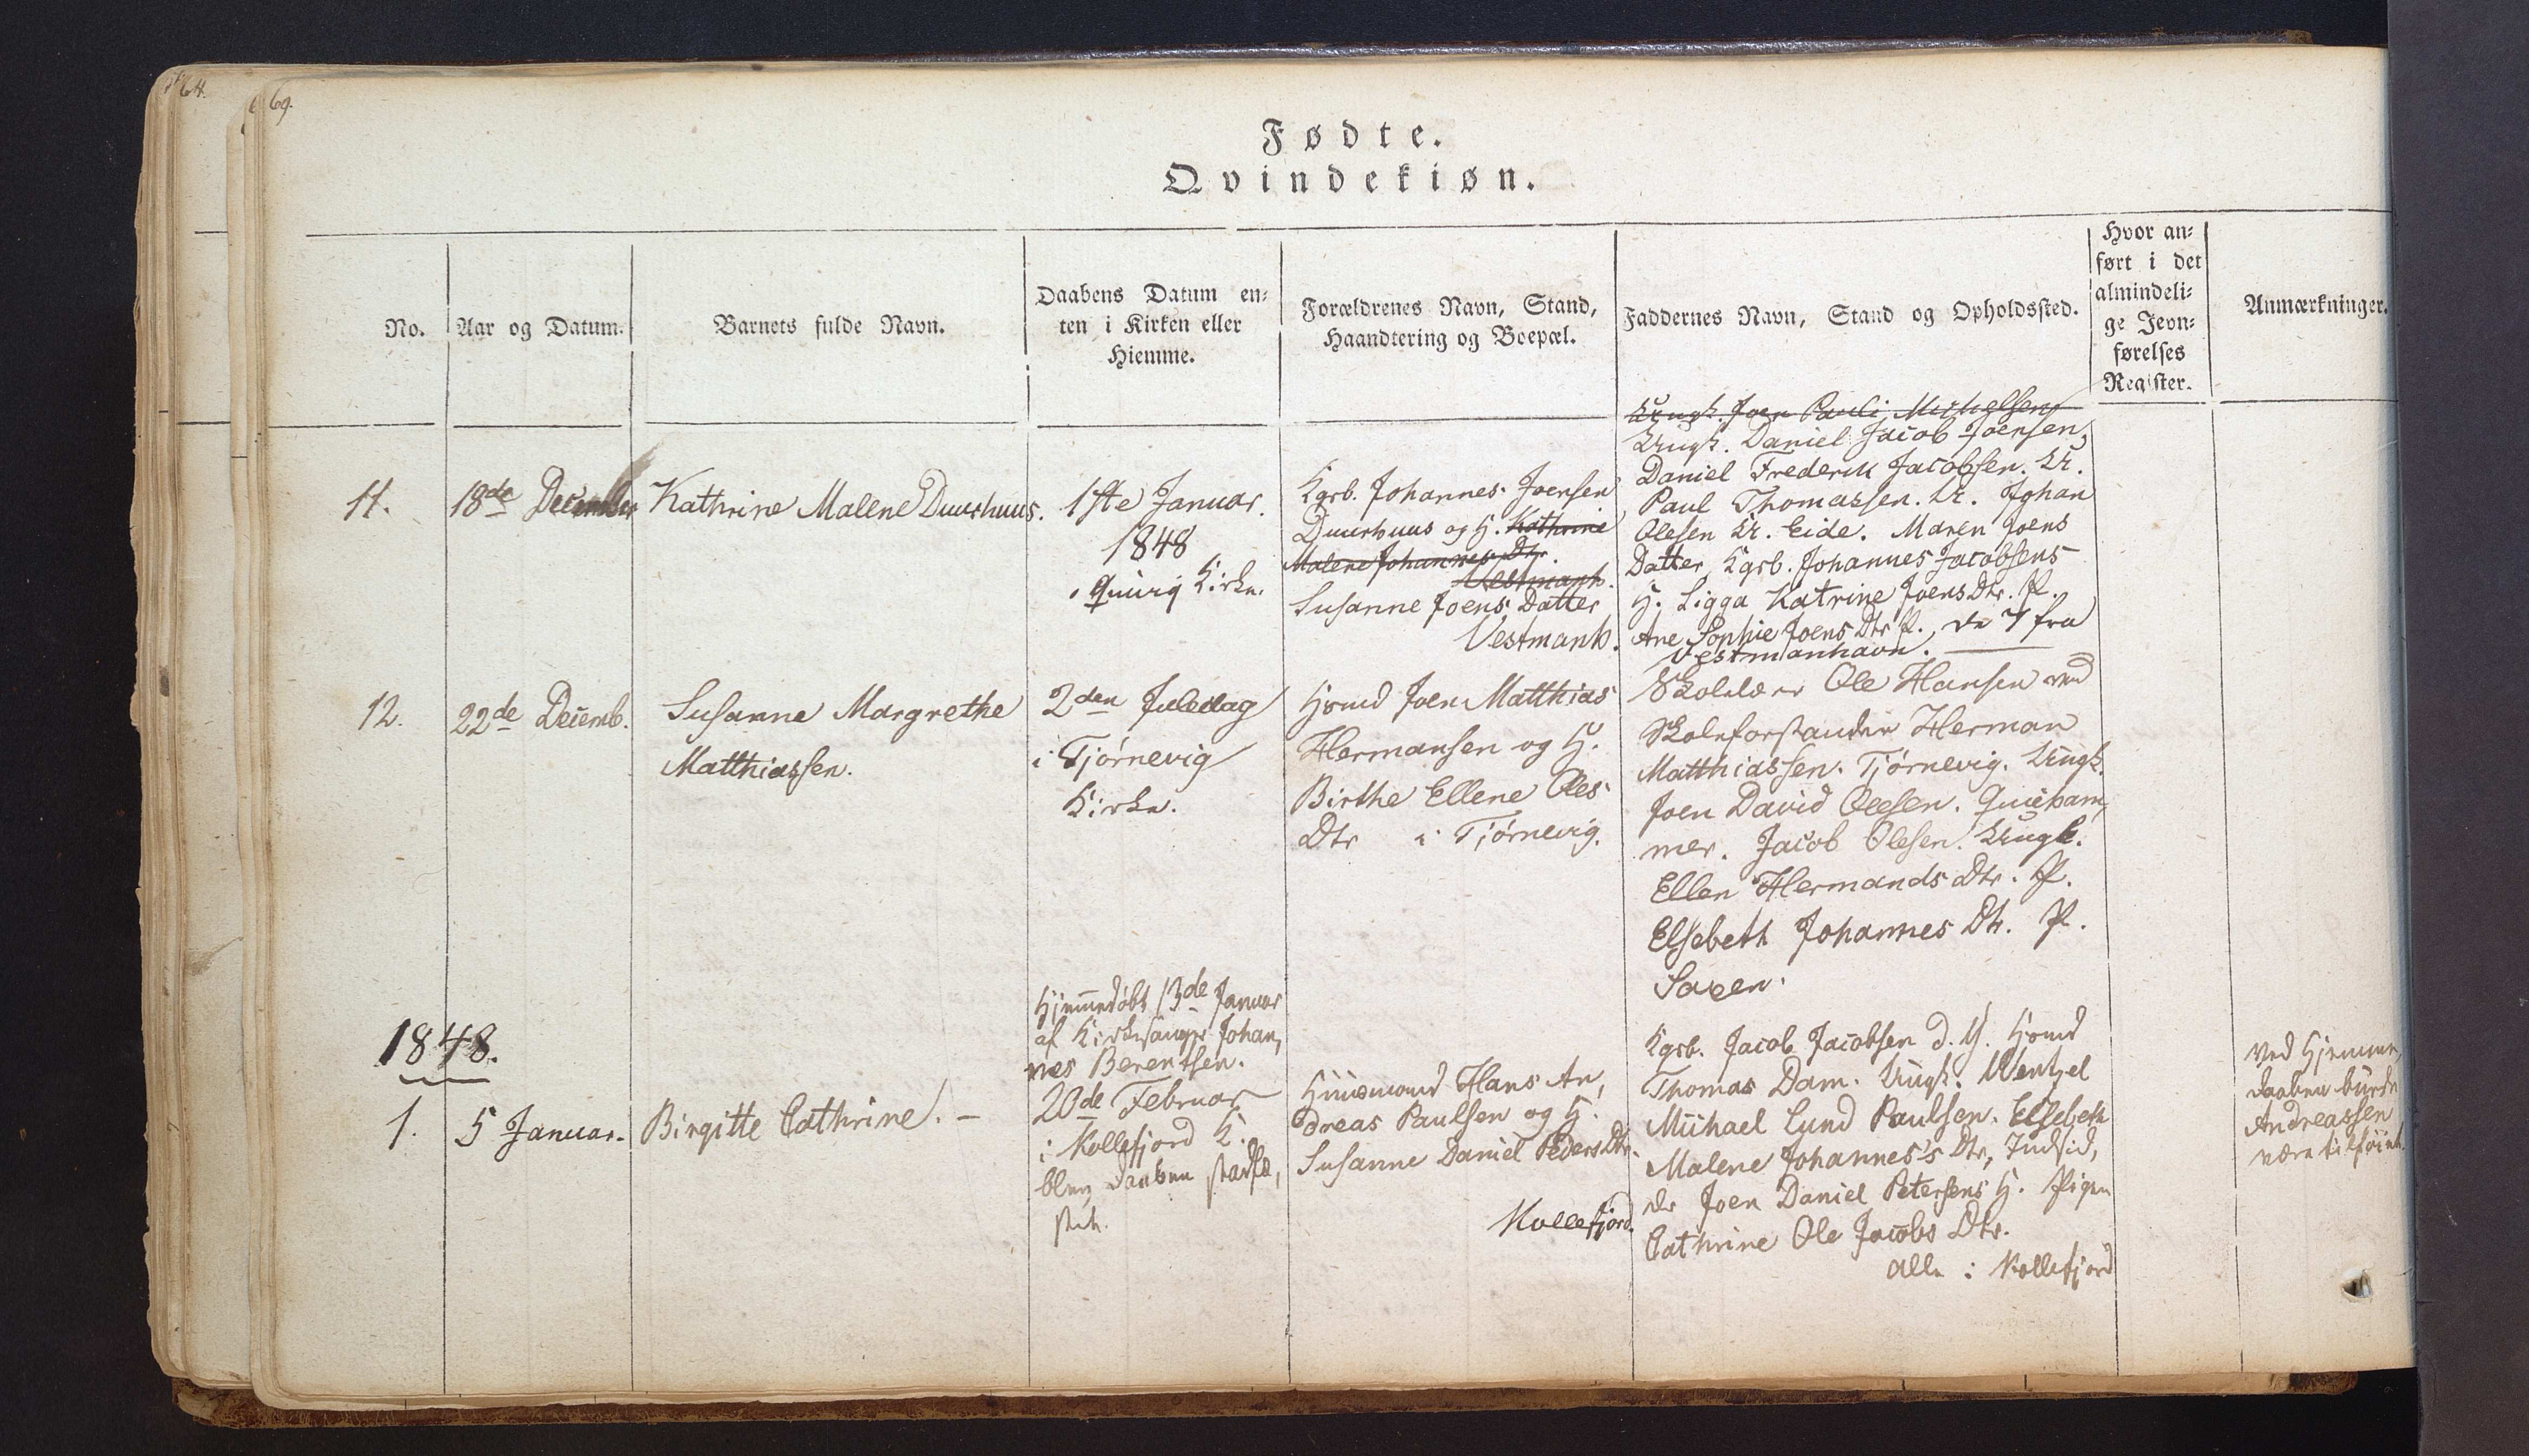 64.
69.
Fødte.
Qvindekiøn.
No.
Aar og Datum.
Barnets fulde Navn.
Daabens Datum en-
ten i Kirken eller
Hiemme.
Forældrenes Navn, Stand,
Haandtering og Boepæl.
Faddernes Navn, Stand og Opholdssted.
Hvor an-
ført i det
almindeli-
ge Jevn-
førelses
Register.
Anmærkninger.
11.
18de December
Kathrine Malene Duurhuus.
1ste Januar.
1848
i Quivig Kirke.
Kgsb. Johannes Joensen
Duurhuus og H. Kathrine
Malene Johannes Dtr.
Vestmanh.
Susanne Joens Datter
Vestmanh.
Ungk. Joen Pauli Michelsen
Ungk. Daniel Jacob Joensen,
Daniel Frederik Jacobsen. U.
Paul Thomassen. U. Johan
Olesen U. Eide. Maren Joens
Datter, Kgsb. Johannes Jacobsens
H. Sigga Katrine Joens Dtr. P.
Ane Sophie Joens Dtr P. de 7 fra
Vestmanhavn.
12.
22de Decemb.
Susanne Margrethe
Matthiassen.
2den Juledag
i Tjørnevig
Kirke.
Hsmd Joen Matthias
Hermansen og H.
Birthe Ellene Oles
Dtr i Tjørnevig.
Skolelærer Ole Hansen ved
Skoleforstander Herman
Matthiassen. Tjørnevig. Ungk.
Joen David Olesen. Quieham,
mer. Jacob Olesen. Ungk.
Ellen Hermands Dtr. P.
Elsebeth Johannes Dtr. P.
Saxen.
1848.
1.
5 Januar.
Birgitte Cathrine. -
Hjemmedøbt 13de Januar
af Kirkesanger Johan,
nes Berentsen.
20de Februar
i Kollefjord K.
blev Daaben stadfæ,
stet.
Huusmand Hans An,
dreas Paulsen og H.
Susanne Daniel Peders Dtr.
Kollefjord.
Kgsb. Jacob Jacobsen d. Y. Hsmd
Thomas Dam. Ungk. Wentzel
Michael Lund Paulsen. Elsebeth
Malene Johannes's Dtr, Indsid,
der Joen Daniel Petersens H. Pigen
Cathrine Ole Jacobs Dtr.
alle i Kollefjord
Ved Hjemme,
daaben burde
Andreassen
være tilføiet.